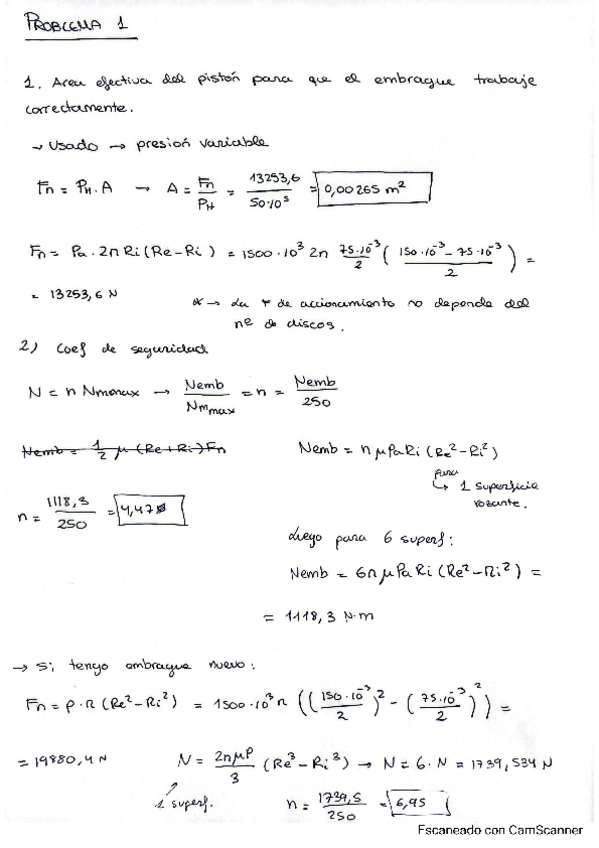 PROBLEMA 1
1. Area efectiva del pistón para que el embrague trabaje
correctamente.
→ Usado → presión variable
Fn = PH . A → A = Fn / PH = 13253,6 / 50·10⁵ = 0,00265 m²
Fn = Pa · 2π Ri (Re - Ri) = 1500 · 10³ 2π 75·10⁻³ / 2 ( 150·10⁻³ - 75·10⁻³ / 2 ) =
= 13253,6 N
* → La F de accionamiento no depende del
nº de discos.
2) Coef de seguridad
N = n Nmonax → Nemb / Nmmax = n = Nemb / 250
Nemb = 1/2 μ (Re + Ri) Fn
Nemb = π μ Pa Ri (Re² - Ri²)
para
↳ 1 superficie
rozante.
n = 1118,3 / 250 = 4,47
Luego para 6 superf:
Nemb = 6π μ Pa Ri (Re² - Ri²) =
= 1118,3 N·m
→ Si tengo embrague nuevo:
Fn = p · π (Re² - Ri²) = 1500 · 10³ π (( 150·10⁻³ / 2 )² - ( 75·10⁻³ / 2 )²) =
= 19880,4 N N = 2πμP / 3 (Re³ - Ri³) → N = 6 · N = 1739,534 N
1 superf. n = 1739,5 / 250 = 6,95
Escaneado con CamScanner